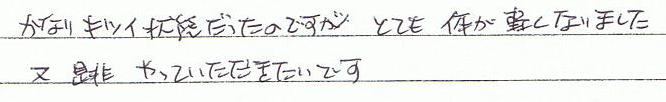 かなりキツイ状態だったのですが とても 体が軽くなりました
又 是非 やっていただきたいです